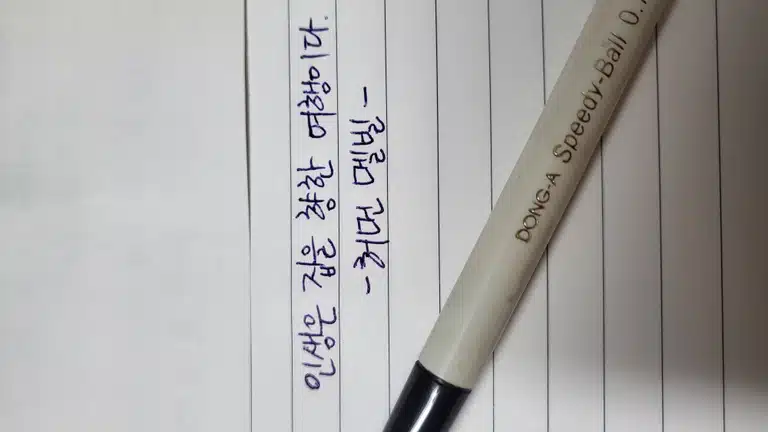 인생은 집을 향한 여행이다.
-허먼 멜빌-
DONG-A Speedy-Ball 0.